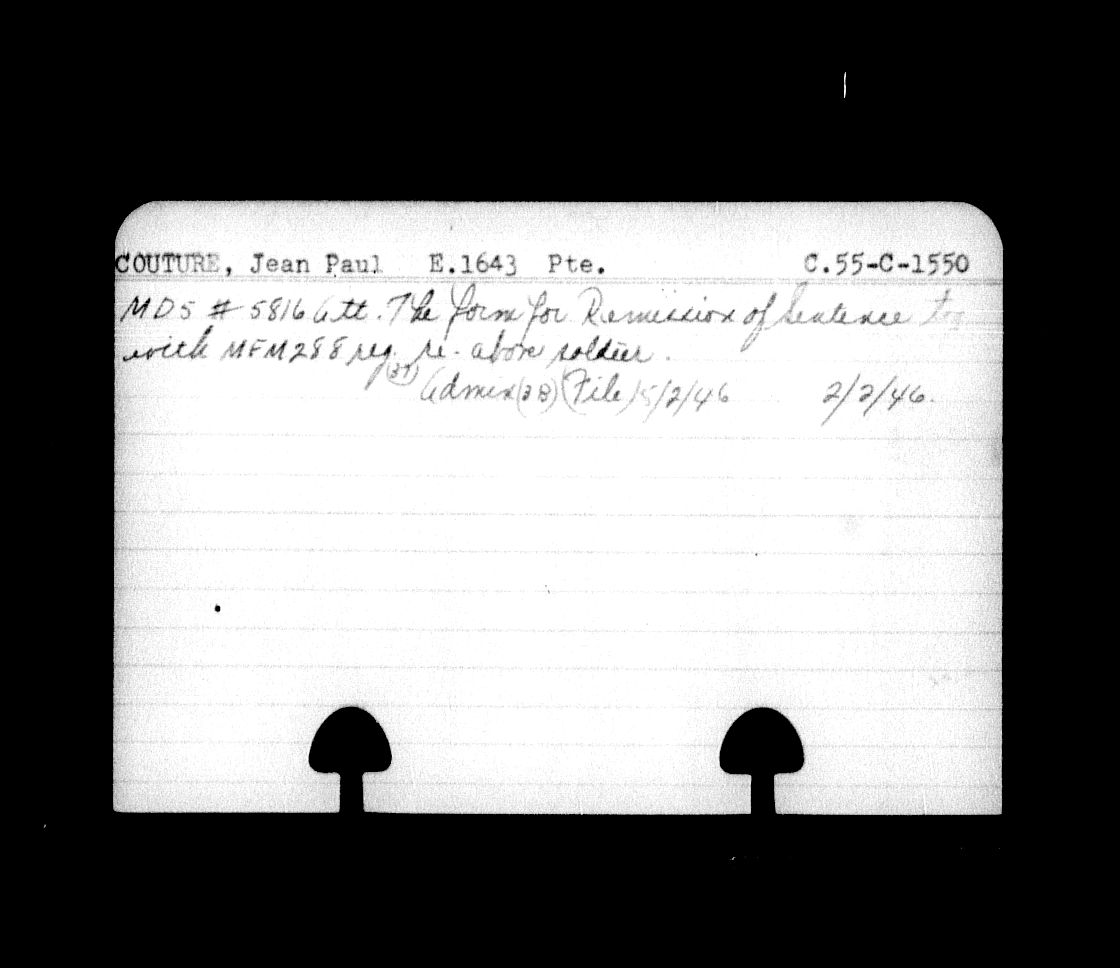 COUTURE, Jean Paul E.1643 Pte. C.55-C-1550
MD5 # 5816 Att. The form for Remission of Sentence tog
with MFM288 reg. re. above soldier.
(37) Admin (3B) (File) 5/2/46 2/2/46.